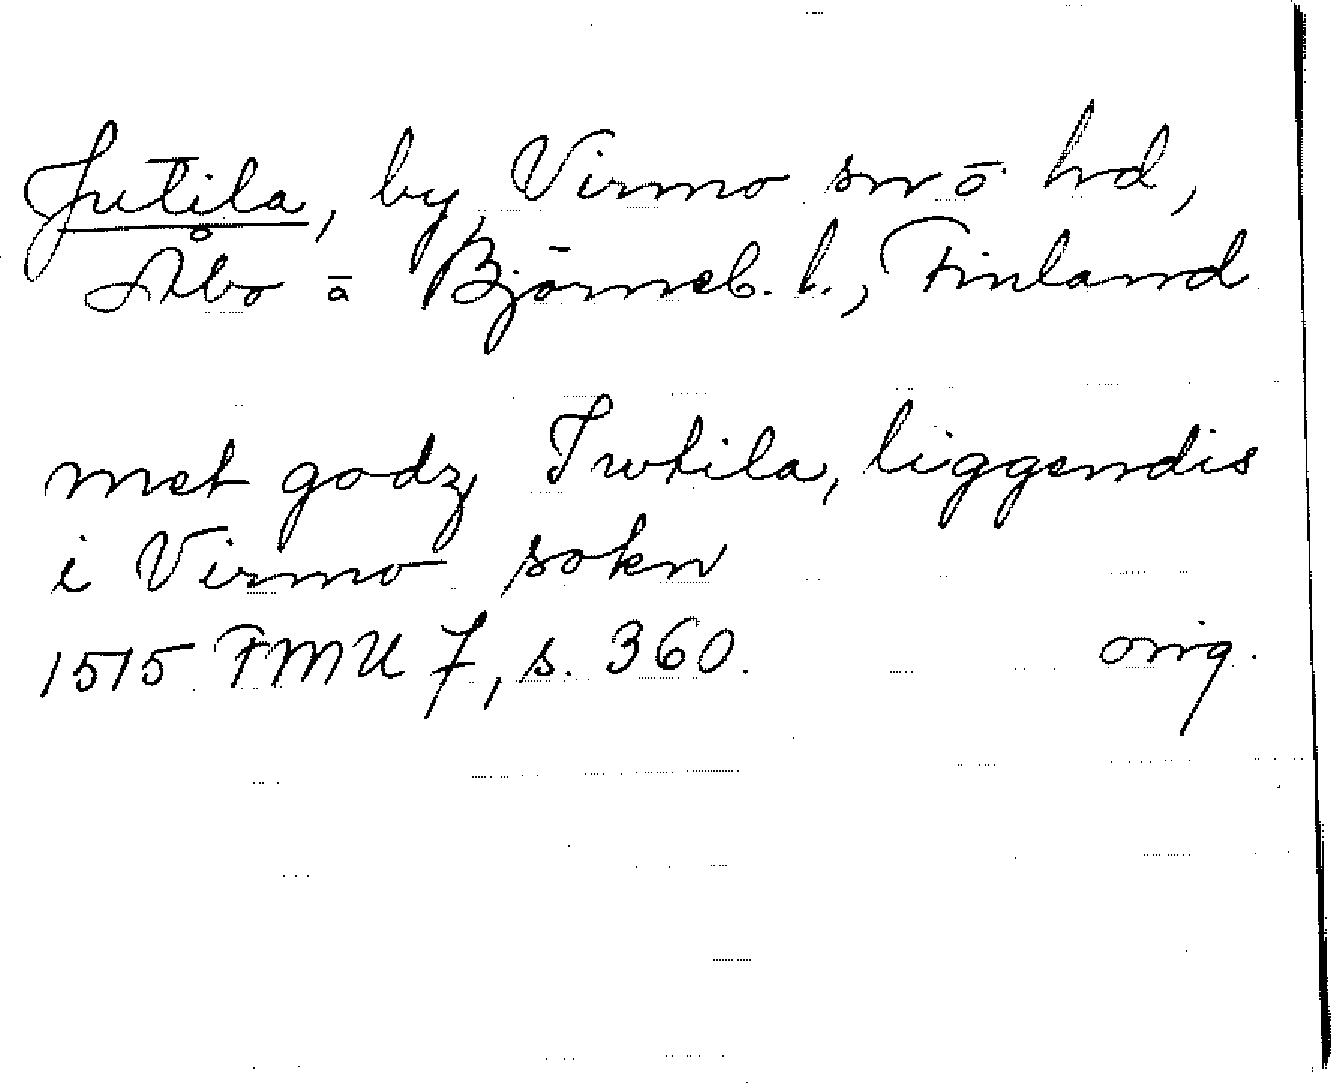 Jutila, by, Virmo sn o hd,
Åbo o Björneb. l., Finland
met godz Iwtila, liggendis
i Virmo sokn
1515 FMU 7, s. 360. orig.